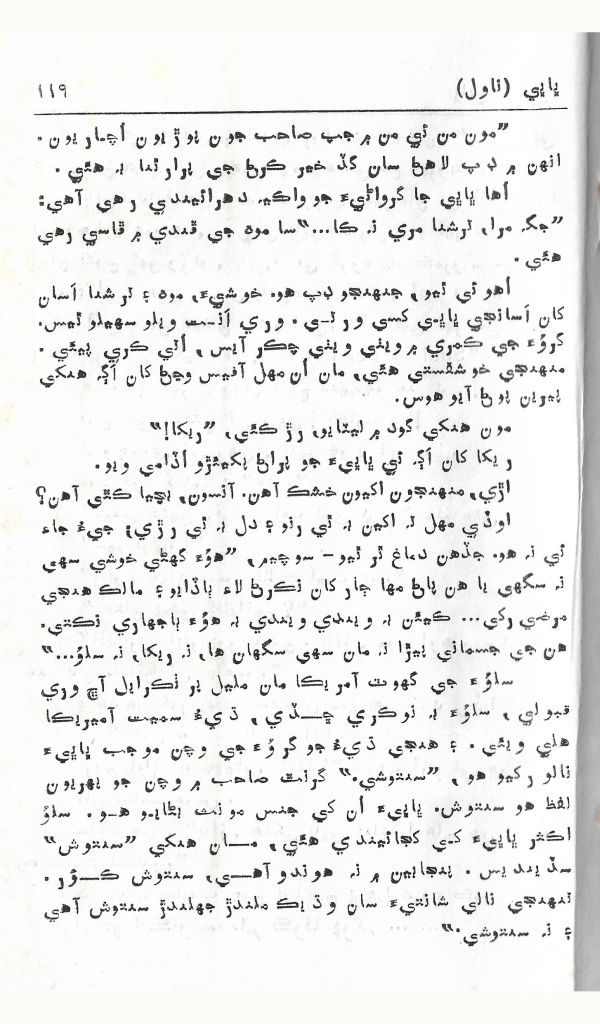 پاپي (ناول) ۱۱۹
”مون من ئي من ۾ جپ صاحب جون پوڙيون اُچاريون.
انهن ۾ ڊپ لاهڻ سان گڏ خير ڪرڻ جي پرارٿنا به هئي.
اُها پاپي جا گرواڻيءَ جو واڪيه دهرائيندي رهي آهي:
”جگہ مرا، ترشنا مري نہ ڪا...“سا موه جي ڦندي ۾ ڦاسي رهي
هئي.
اُهو ئي ٿيو، جنهنجو ڊپ هو. خوشيءَ، موه ۽ ترشنا اَسان
کان اَسانجي پاپي کسي ورتي. وري اَنت ويلو سهيلو ٿيس.
گرُوءَ جي ڪمري ۾ ويٺي ويٺي چڪر آيس، اُتي ڪري پيئي.
منهنجي خوشقسمتي هئي، مان اُن مهل آفيس وڃڻ کان اڳ هنکي
پيرين پوڻ آيو هوس.
مون هنکي گود ۾ ليٽايو، رڙ ڪئي، ”ريکا!“
ريکا کان اڳ ئي پاپيءَ جو پراڻ پکيئڙو اُڏامي ويو.
اڙي، منهنجون اکيون خشڪ آهن. آنسون، بچيا ڪٿي آهن؟
اوڏي مهل تہ اکين بہ ئي رنو ۽ دل بہ ئي رڙي؛ جيءُ جاءِ
ئي نہ هو. جڏهن دماغ ٺريو – سوچيم، ”هوُءَ گهڻي خوشي سهي
نہ سگهي يا هن پاڻ مها ڄار کان نڪرڻ لاءِ ٻاڏايو ۽ مالڪ هنجي
مرضي رکي... ڪيئن بہ ويندي ويندي بہ هوُءَ ٻاجهاري نڪتي.
هن جي جسماني پيڙا نہ مان سهي سگهان ها، نہ ريکا، نہ سلوُ...“
سلوُءَ جي گهوٽ آمريڪا مان مليل پر ٺڪرايل آڇ وري
قبولي، سلوُءَ بہ نوڪري ڇڏي، ڌيءُ سميت آميريڪا
هلي ويئي. ۽ هنجي ڌيءُ جو گرُوءَ جي وچن موجب پاپيءَ
نالو رکيو هو، ”سنتوشي.“ گرنٿ صاحب ۾ وچن جو پهريون
لفظ هو سنتوش. پاپيءَ اُن کي جنس مونث بڻايو هو. سلوُ
اڪثر پاپيءَ کي کجائيندي هئي، مان هنکي ”سنتوش“
سڏيندیس. پنجابين ۾ نہ هوندو آهي، سنتوش ڪؤر.
تنهنجي نالي شانتيءَ سان وڌيڪ ملندڙ جهلندڙ سنتوش آهي
۽ نہ سنتوشي.“